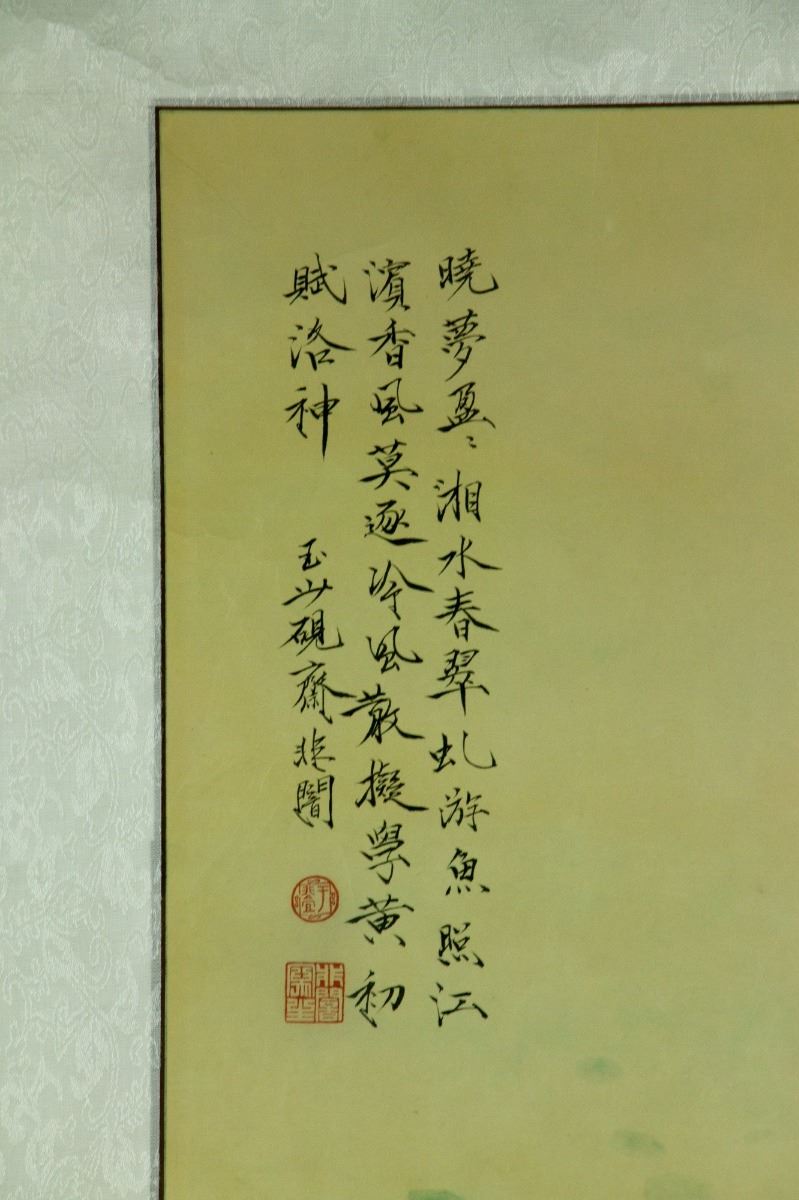 曉夢盈〻湘水春翠虬游魚照江
濱香風莫逐冷風散擬學黄初
賦洛神
玉山硯齋非闇